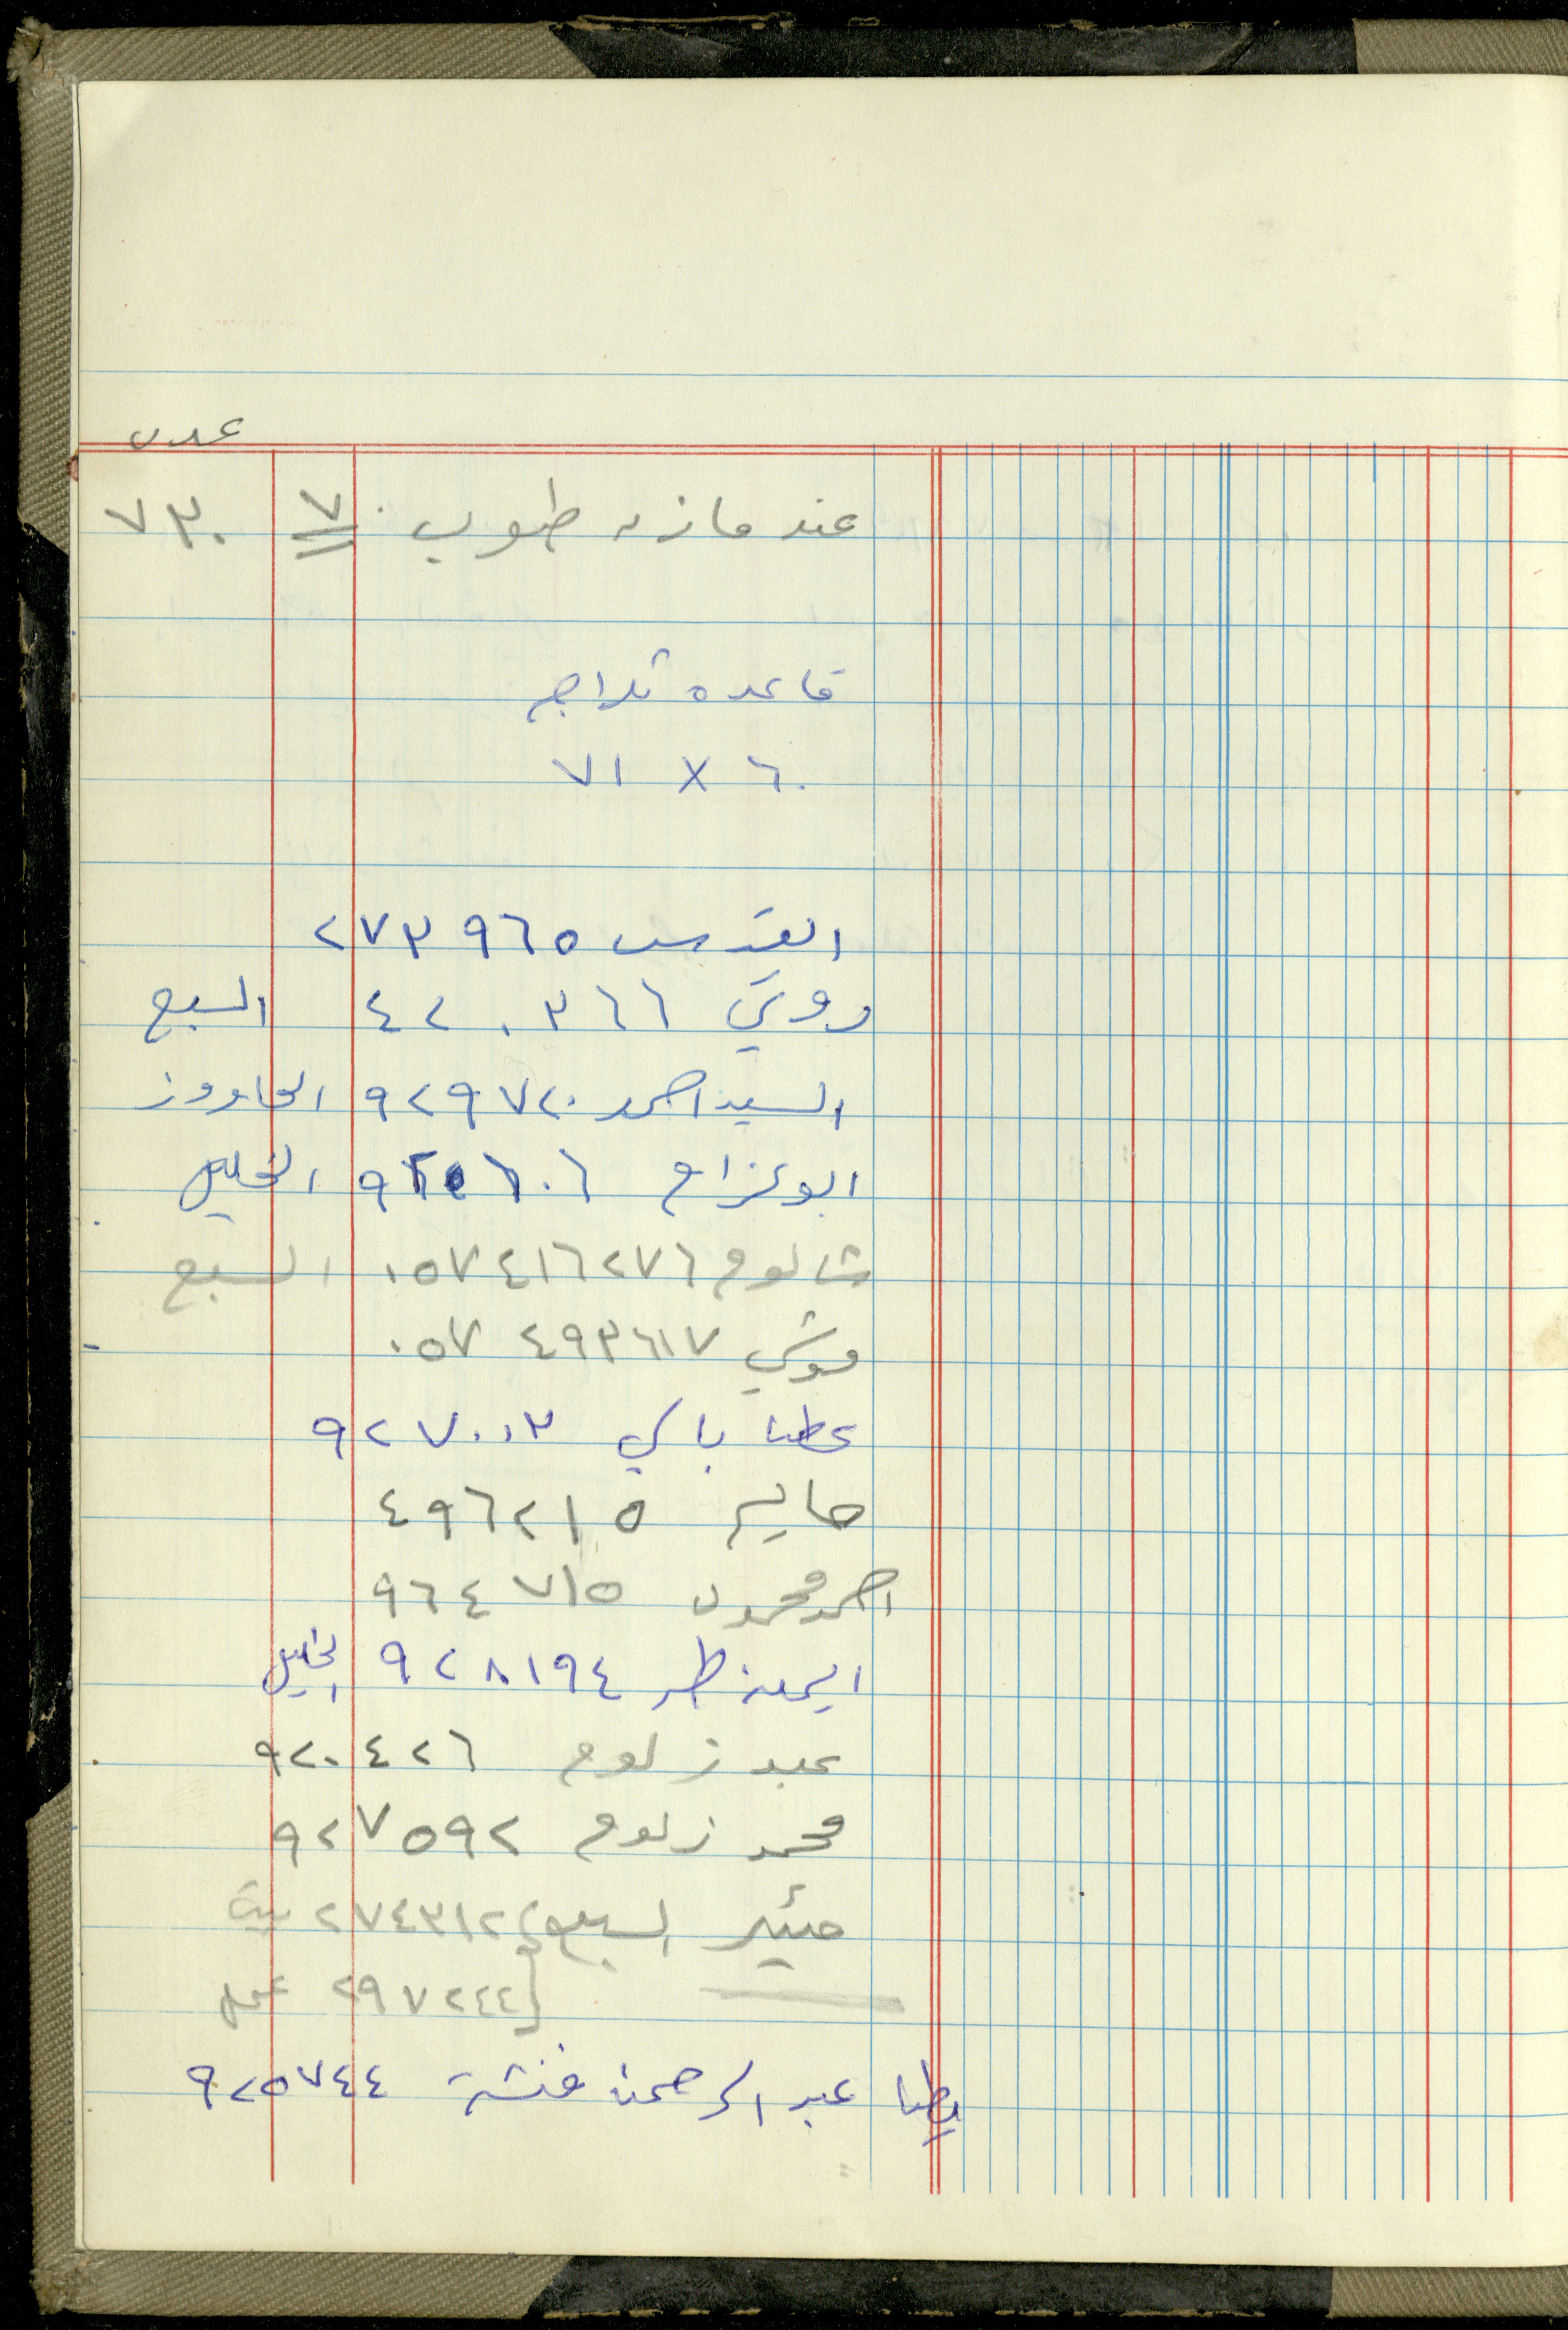 عدد
عند مازن طبوب ٧ ٧٣٠
قاعده ثلاجه
٧١ × ٦٠
القدس ٢٧٣٩٦٥
روني ٤٢٠٣٦٦ السبع
السيد احمد ٩٢٩٧٢٠ الحاووز
ابو عزام ٦٠٦ الخليل
شالوم ٠٥٧٤١٦٢٧٦ السبع
موشي ٠٥٧ ٤٩٣٦١٧
عطا باكي ٩٢٧٠٠٣
حايم ٤٩٦٢١٥
احمد محمود ٩٦٤٧١٥
ايمن ٩٢٨١٩٤ الخليل
عبد زلوم ٩٢٠٤٢٦
محمد زلوم ٩٢٧٥٩٢
مئير السبع ٢٧٤٣١٢ بيت
٢٩٧٢٤٤ عمل
يطا عبد الرحمن ٩٢٥٧٤٤